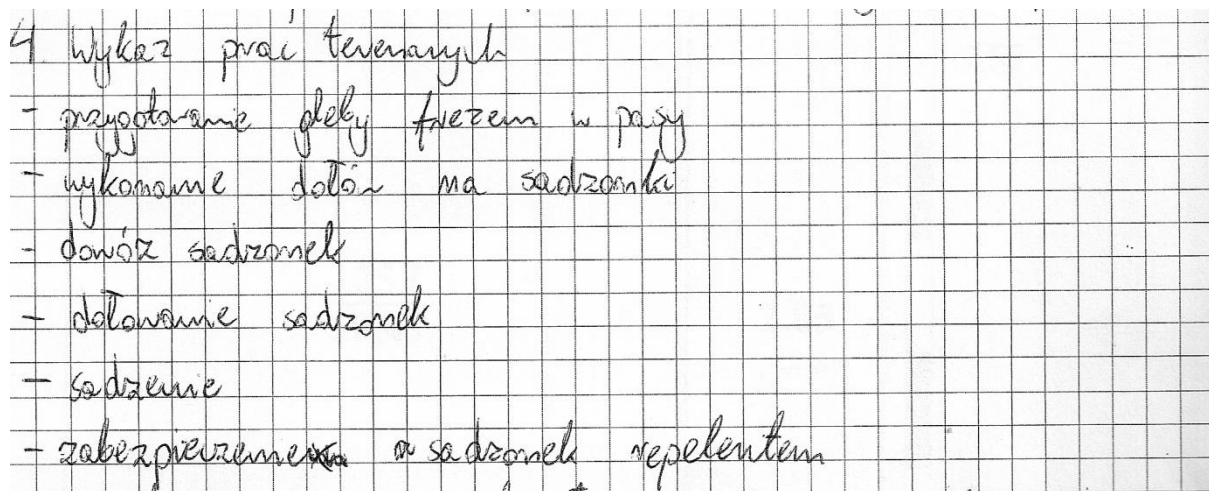 4 Wykaz prac terenowych
- przygotowanie gleby frezem w pasy
- wykonanie dołów na sadzonki
- dowóz sadzonek
- dołowanie sadzonek
- sadzenie
- zabezpieczenie sadzonek repelentem